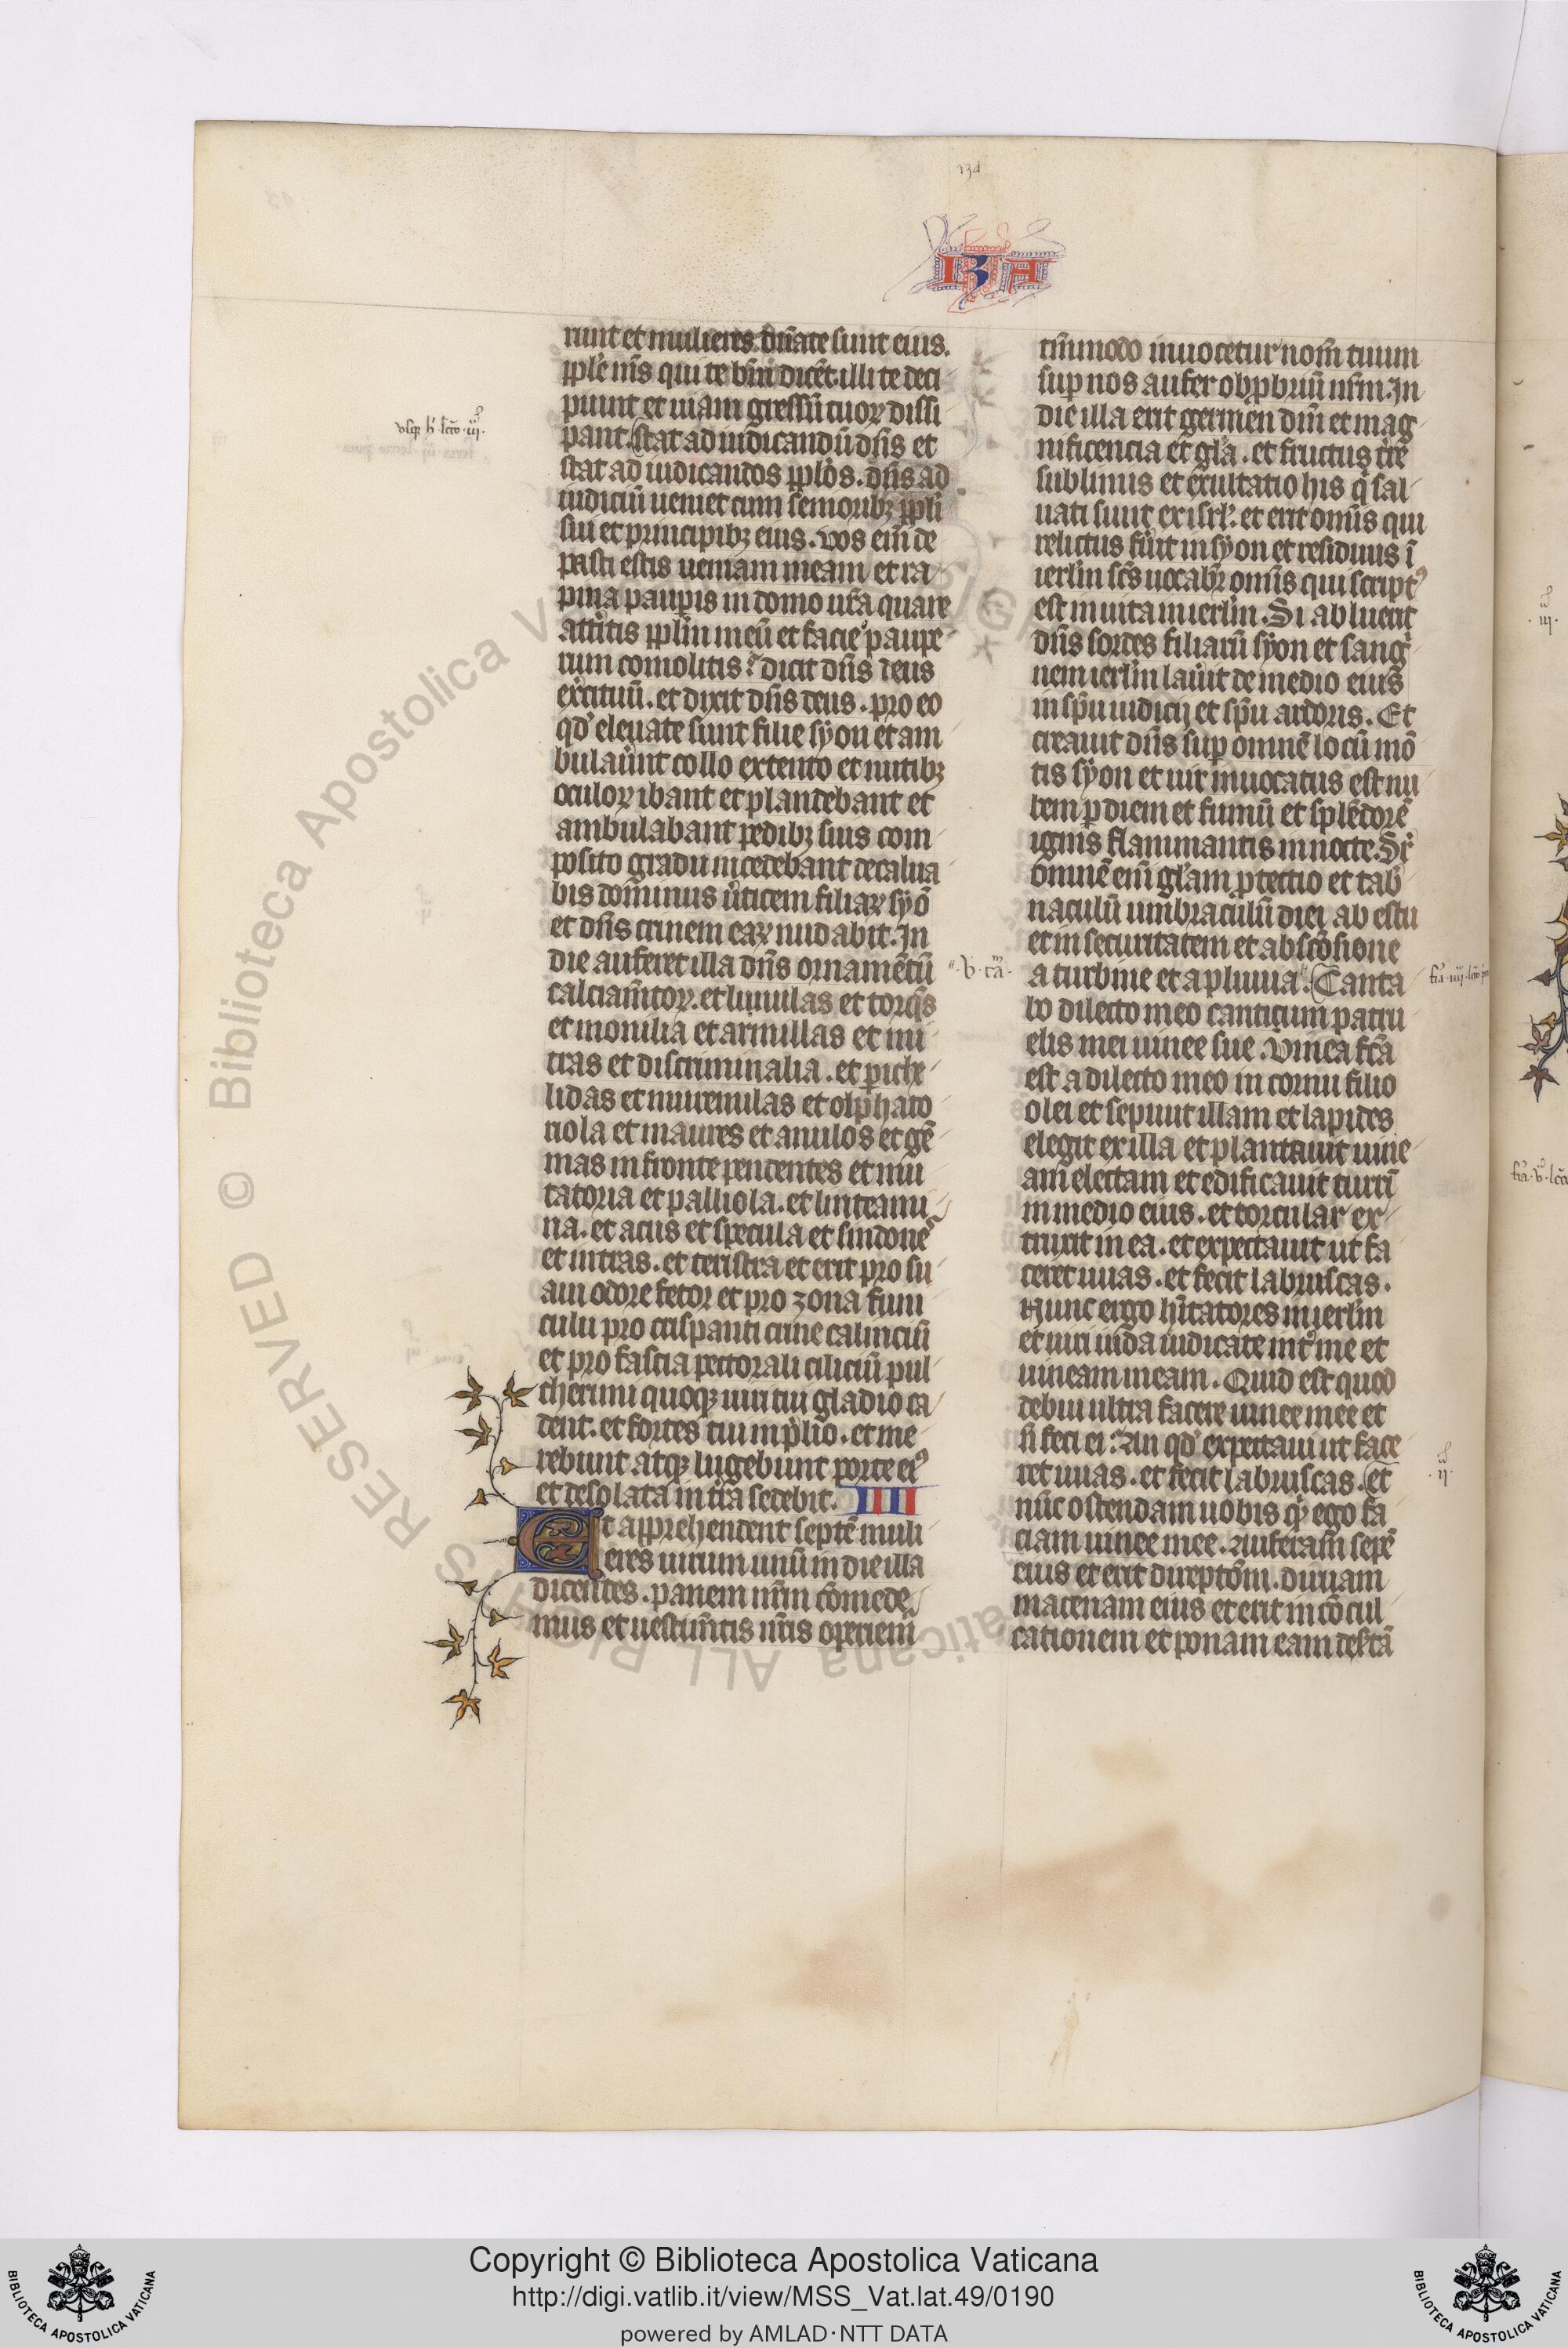 13d
ISA
runt et mulieres dn̄ate sunt eius.
pp̄le m̄s qui te bn̄ dicēt illi te deci
piunt et uiam gressuū tuoꝝ dissi
pant. stat ad iudicandū dn̄s et
stat ad iudicandos pp̄los. dn̄s ad
iudiciū ueniet cum senioribꝫ pp̄li
sui et principibꝫ eius. vos eīm de
pasti estis uineam meam et ra
pina paupis in domo ur̄a quare
attītis pp̄lm meū et facieꝰ paupe
rum comolitis? dicit dn̄s deus
ex̄cituū. et dixit dn̄s deus. pro eo
qd' eleuate sunt filie syon et am
bulaūnt collo extento et nutibꝫ
oculoꝝ ibant et plaudebant et
ambulabant pedibꝫ suis com
posito gradu incedebant decalua
bis dominus ūticem filiaꝝ syō
et dn̄s crinem eaꝝ nudabit. In
die auferet illa dn̄s ornamētū
calciam̄toꝝ. et lunulas et torq̄s
et monilia et armillas et mi
tras et discriminalia. et piche
lidas et murenulas et olphato
riola et inaures et anulos et gē
mas in fronte pendentes et mu
tatoria et palliola. et linteami
na. et acus et specula et sindonēs
et uittas. et teristra et erit pro su
aui odore fetor et pro zona funi
culu pro crispanti crine caluiciū
et pro fascia pectorali ciliciū pul
cherimi quoqꝫ uiri tui gladio ca
dent. et fortes tui in p̄lio. et me
rebunt atqꝫ lugebunt porte eiꝰ
et desolata in tr̄a sedebit. IIII
Et apprehendent septē muli
eres uirum unū in die illa
dicentes. panem nr̄m comede
mus et uestim̄tis nr̄is operiem̄
tm̄modo inuocetur nom̄ tuum
sup nos aufer obpbriū nr̄m. In
die illa erit germen dn̄i et mag
nificencia et gl̄a. et fructus tr̄e
sublimis et exultatio his q̄ sal
uati sunt ex isrl'. et erit omīs qui
relictus fūit in syon et residuus ī
ierlm̄ sc̄s uocab̄r omīs qui scriptꝰ
est in uita in ierlm̄. Si abluerit
dn̄s sordes filiarū syon et sang
nem ierlm̄ lau̅it de medio eius
in sp̄u iudicij et sp̄u ardoris. Et
creauit dn̄s sup omnē locū mō
tis syon et ubi inuocatus est nu
bem p diem et fumū et splēdorē
ignis flammantis in nocte. Sr̄
omnē eīm gl̄am ptectio et tab̄
naculū umbraculū diei ab estu
et in securitatem et abscōsione
a turbine et a pluuia. Canta
bo dilecto meo canticum patru
elis mei uinee sue. Vinea fc̄a
est a dilecto meo in cornu filio
olei et sepiuit illam et lapides
elegit ex illa et plantauit uine
am electam et edificauit turrī
in medio eius. et torcular ex
truxit in ea. et expectauit ut fa
ceret uuas. et fecit labruscas.
Nunc ergo hītatores in ierlm̄
et uiri iuda iudicate intꝰ me et
uineam meam. Quid est quod
debui ultra facere uinee mee et
n̄ feci ei? An qd' expectaui ut face
ret uuas. et fecit labruscas. et
nūc ostendam uobis q̄ ego fa
ciam uinee mee. Auferam sepē
eius et erit direptōm. diruam
maceriam eius et erit in cōcul
cationem et ponam eam desr̄tā
Copyright © Biblioteca Apostolica Vaticana
http://digi.vatlib.it/view/MSS_Vat.lat.49/0190
powered by AMLAD·NTT DATA
BIBLIOTECA APOSTOLICA VATICANA
BIBLIOTECA APOSTOLICA VATICANA